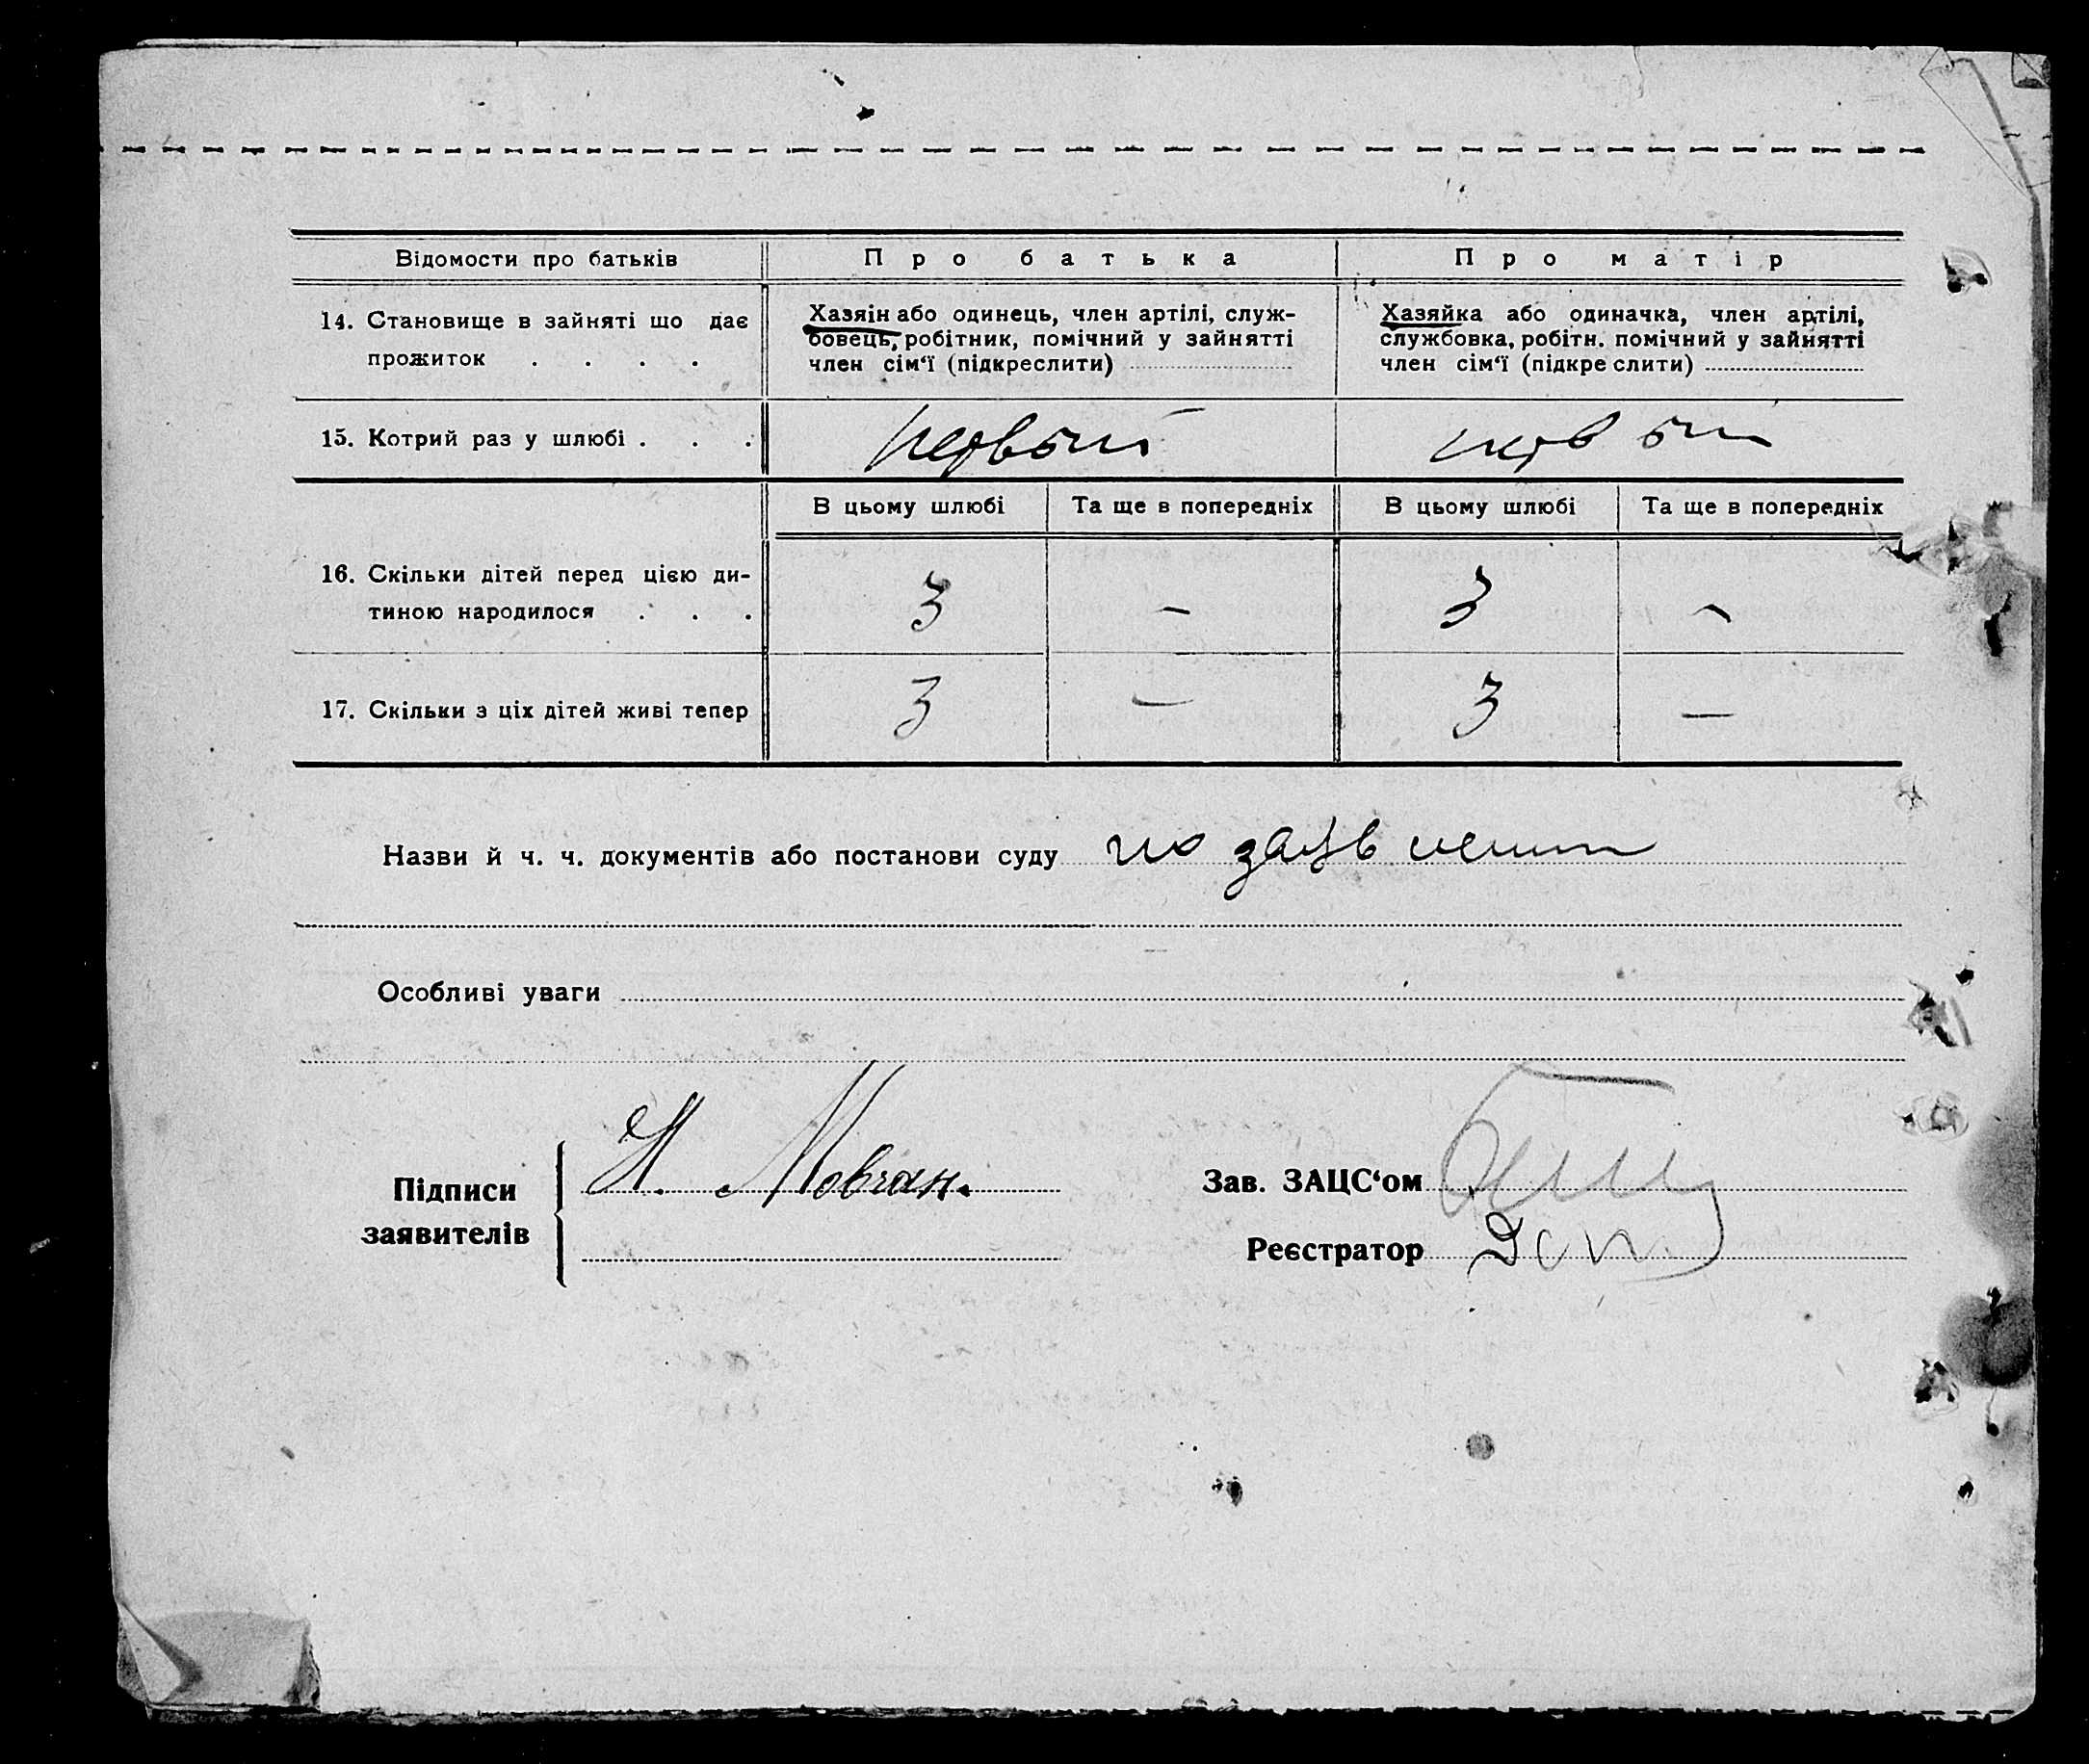 Відомости про батьків Про батька Про матір
14. Становище в зайняті що дає прожиток . . . .
Хазяін або одинець, член артілі, служ-
бовець, робітник, помічний у зайнятті
член сім‘ї (підкреслити)
Хазяйка або одиначка, член артілі,
службовка, робітн. помічний у зайнятті
член сім‘ї (підкреслити)
15. Котрий раз у шлюбі . . . первый первый
В цьому шлюбі Та ще в попередніх В цьому шлюбі Та ще в попередніх
16. Скільки дітей перед цією ди-
тиною народилося . . . 3 – 3 –
17. Скільки з ціх дітей живі тепер 3 – 3 –
Назви й ч. ч. документів або постанови суду по
Особливі уваги
Підписи
заявителів
Н. Мовчан.
Зав. ЗАЦС‘ом
Реєстратор